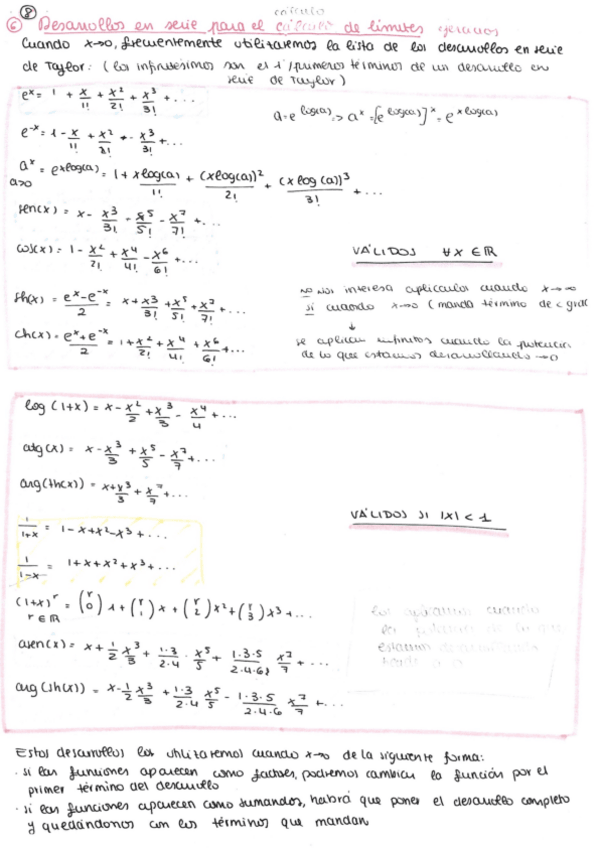 ⑧ cálculo
⑥ Desarrollos en serie para el cálculo de límites
Cuando x→0, frecuentemente utilizaremos la lista de los desarrollos en serie
de Taylor: (los infinitésimos son el 1º/primeros términos de un desarrollo en
serie de Taylor)
e^x = 1 + x/1! + x²/2! + x³/3! + ...
a=e^log(a) => a^x = [e^log(a)]^x = e^xlog(a)
e^-x = 1 - x/1! + x²/2! - x³/3! + ...
a^x = e^xlog(a) = 1 + xlog(a)/1! + (xlog(a))²/2! + (xlog(a))³/3! + ...
a>0
sen(x) = x - x³/3! + x⁵/5! - x⁷/7! + ...
cos(x) = 1 - x²/2! + x⁴/4! - x⁶/6! + ...
VÁLIDOS ∀x∈ℝ
sh(x) = (e^x - e^-x)/2 = x + x³/3! + x⁵/5! + x⁷/7! + ...
no nos interesa aplicarlos cuando x→∞
sí cuando x→0 (manda término de < grd
↓
ch(x) = (e^x + e^-x)/2 = 1 + x²/2! + x⁴/4! + x⁶/6! + ...
se aplican infinitos cuando la potencia
de lo que estamos desarrollando →0
log(1+x) = x - x²/2 + x³/3 - x⁴/4 + ...
atg(x) = x - x³/3 + x⁵/5 - x⁷/7 + ...
arg(th(x)) = x + x³/3 + x⁷/7 + ...
VÁLIDOS si |x| < 1
1/(1+x) = 1 - x + x² - x³ + ...
1/(1-x) = 1 + x + x² + x³ + ...
(1+x)^r = (r 0) 1 + (r 1) x + (r 2) x² + (r 3) x³ + ...
r∈ℝ
los aplicamos cuando
asen(x) = x + 1/2 x³/3 + 1·3/2·4 · x⁵/5 + 1·3·5/2·4·6 x⁷/7 + ...
arg(sh(x)) = x - 1/2 x³/3 + 1·3/2·4 x⁵/5 - 1·3·5/2·4·6 x⁷/7 + ...
Estos desarrollos los utilizaremos cuando x→0 de la siguiente forma:
· si las funciones aparecen como factores, podremos cambiar la función por el
primer término del desarrollo
· si las funciones aparecen como sumandos, habrá que poner el desarrollo completo
y quedándonos con los términos que mandan